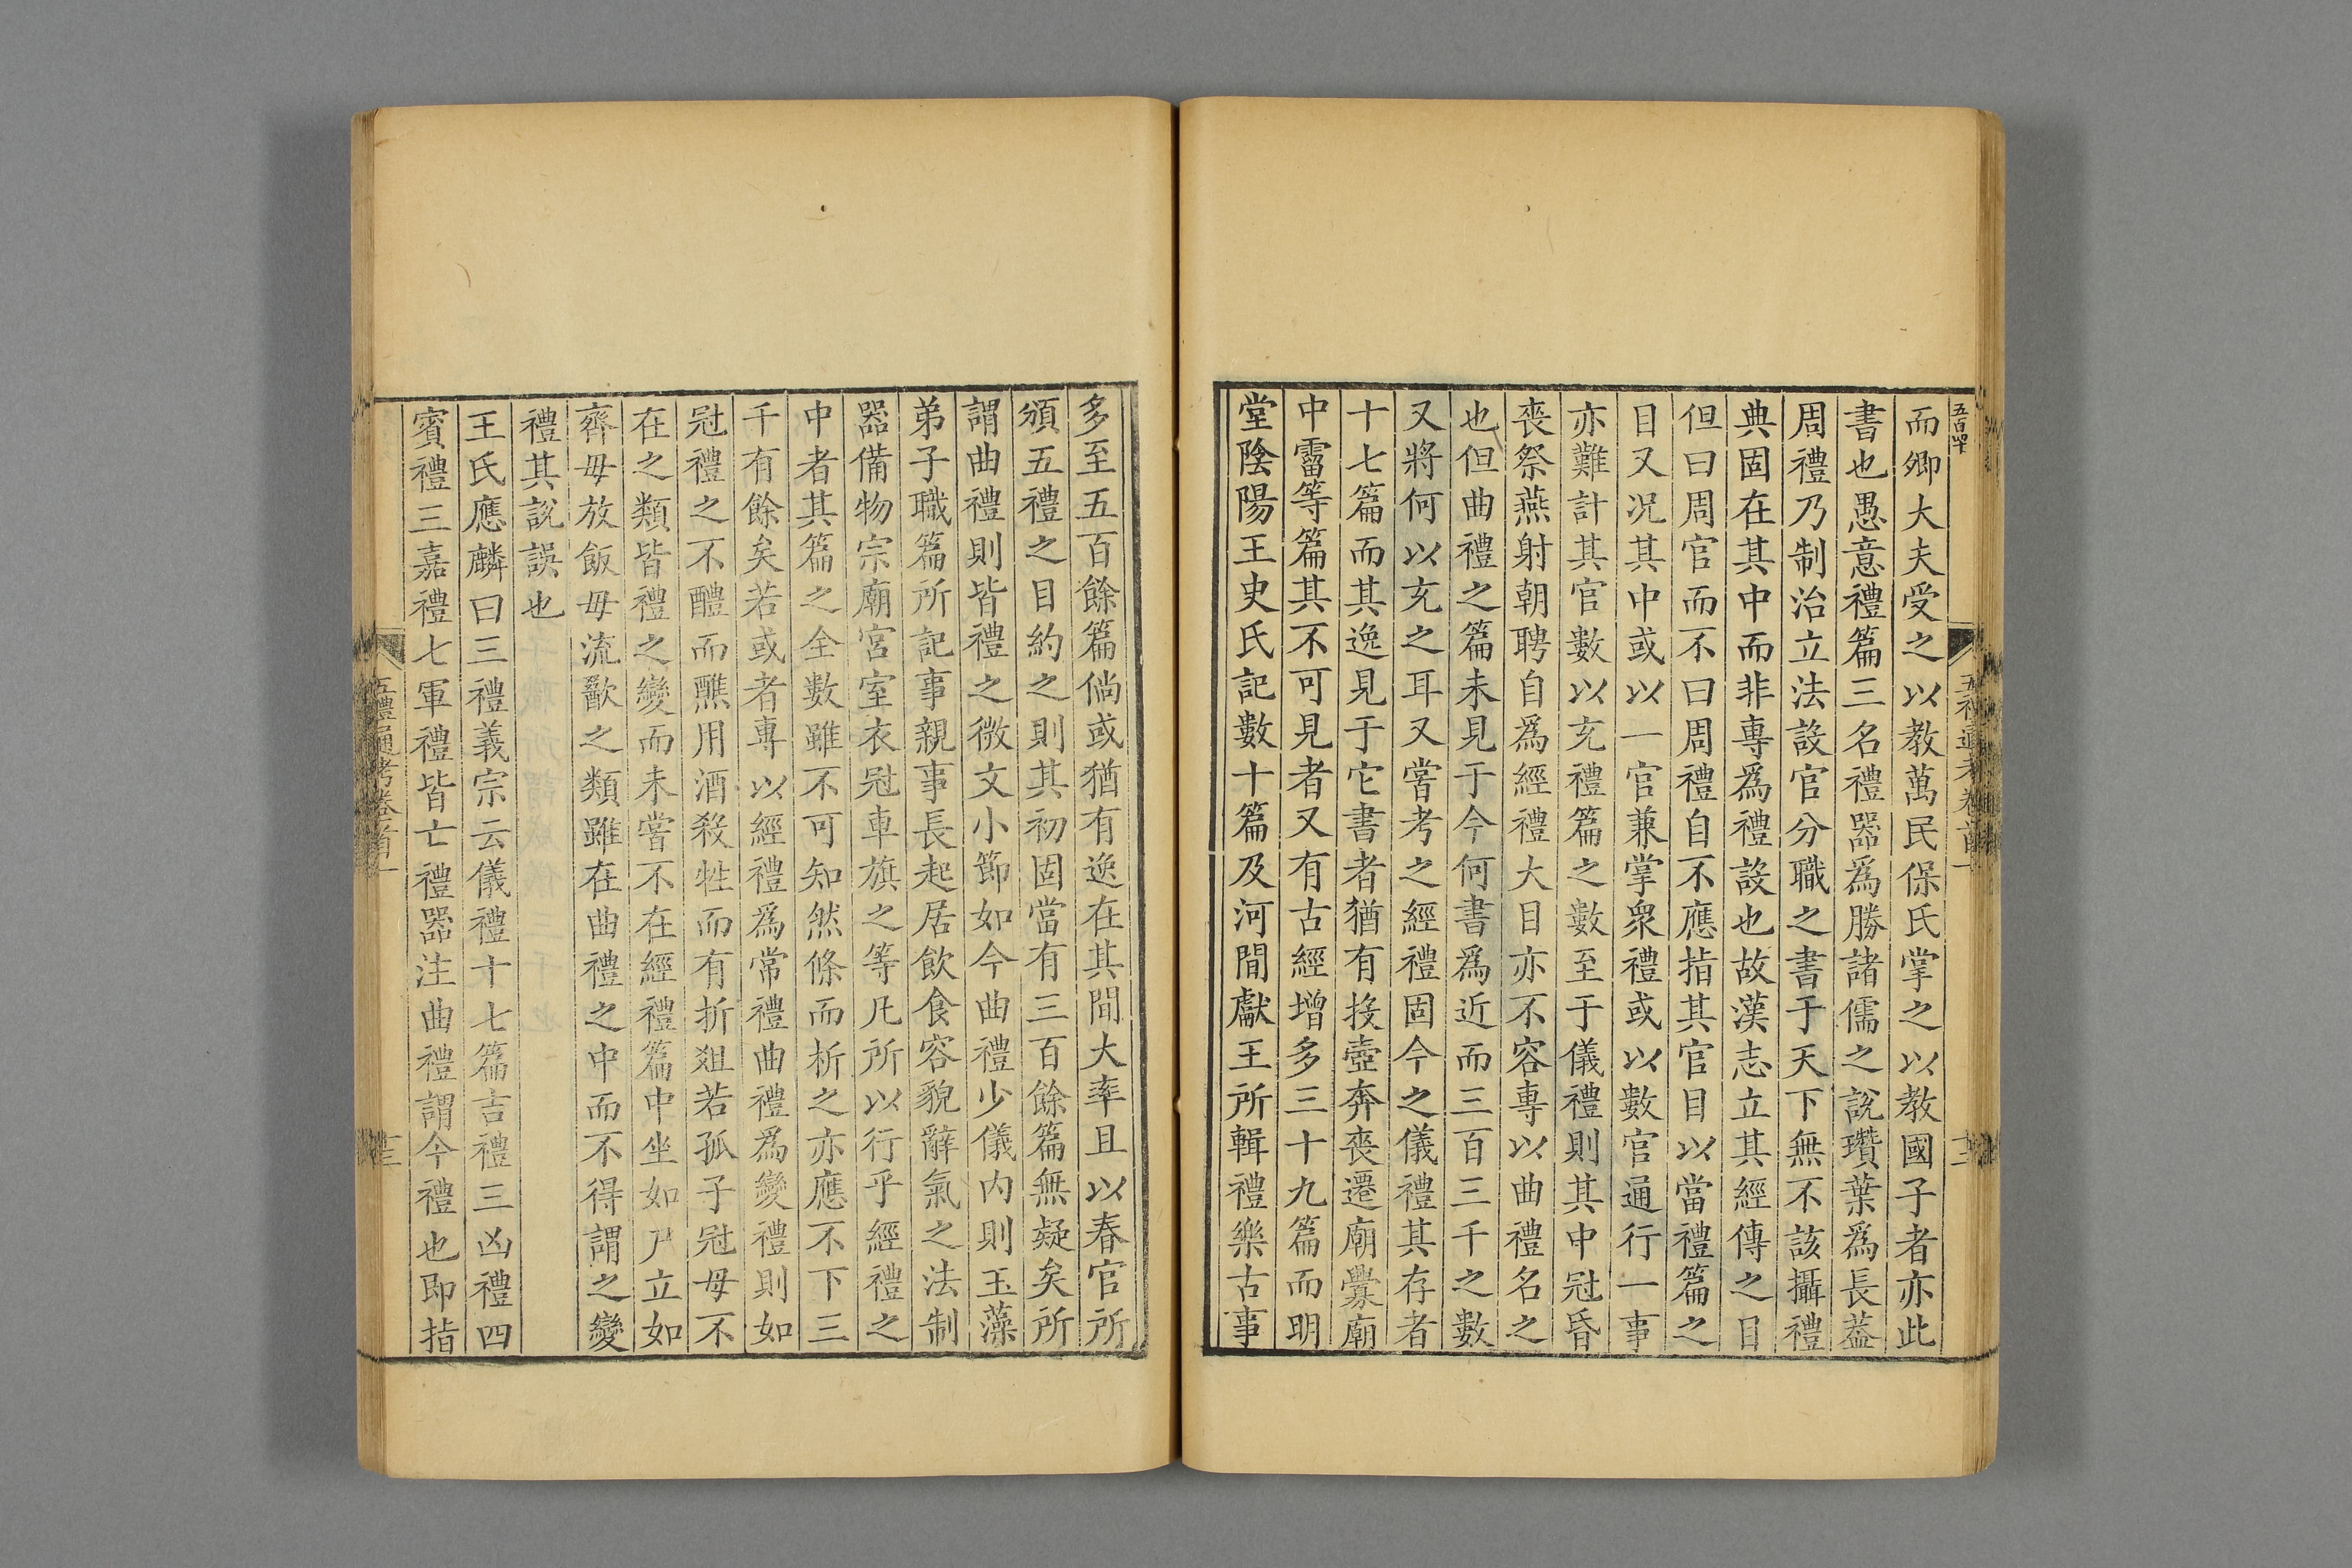 而卿大夫受之以教萬民保氏掌之以教國子者亦此
書也愚意禮篇三名禮器爲勝諸儒之說瓚葉爲長葢
周禮乃制治立法設官分職之書于天下無不該攝禮
典固在其中而非專爲禮設也故漢志立其經傳之目
但曰周官而不曰周禮自不應指其官目以當禮篇之
目又况其中或以一官兼掌衆禮或以數官通行一事
亦難計其官數以充禮篇之數至于儀禮則其中冠昏
喪祭燕射朝聘自爲經禮大目亦不容專以曲禮名之
也但曲禮之篇未見于今何書爲近而三百三千之數
又將何以充之耳又嘗考之經禮固今之儀禮其存者
十七篇而其逸見于它書者猶有投壺奔喪遷廟釁廟
中霤等篇其不可見者又有古經增多三十九篇而明
堂陰陽王史氏記數十篇及河間獻王所輯禮樂古事
多至五百餘篇倘或猶有逸在其間大率且以春官所
頒五禮之目約之則其初固當有三百餘篇無疑矣所
謂曲禮則皆禮之微文小節如今曲禮少儀内則玉藻
弟子職篇所記事親事長起居飲食容貌辭氣之法制
器備物宗廟宮室衣冠車旗之等凡所以行乎經禮之
中者其篇之全數雖不可知然條而析之亦應不下三
千有餘矣若或者專以經禮爲常禮曲禮爲變禮則如
冠禮之不醴而醮用酒殺牲而有折俎若孤子冠母不
在之類皆禮之變而未嘗不在經禮篇中坐如尸立如
齊毋放飯毋流歠之類雖在曲禮之中而不得謂之變
禮其說誤也
王氏應麟曰三禮義宗云儀禮十七篇吉禮三凶禮四
賓禮三嘉禮七軍禮皆亡禮器注曲禮謂今禮也即指
五禮通考卷首一